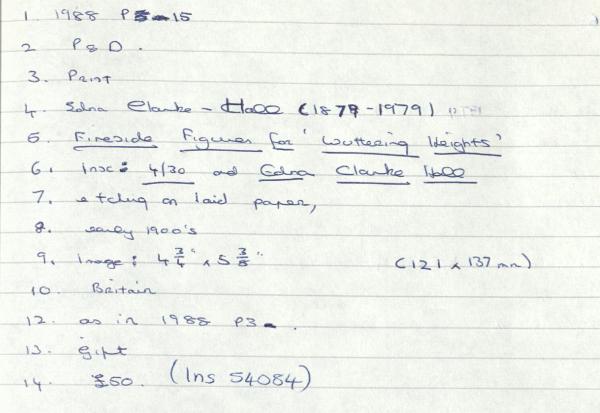 1. 1988 P3-15
2 P & D.
3. Print
4. Edna Clarke-Hall (1879-1979)
5. Fireside Figures for 'Wuthering Heights'
6. Insc: 4/30 and Edna Clarke Hall
7. etching on laid paper,
8. early 1900's
9. Image: 4 3/4" x 5 3/8" (121 x 137 mm)
10. Britain
12. as in 1988 P3-.
13. gift
14. £50. (Ins 54084)